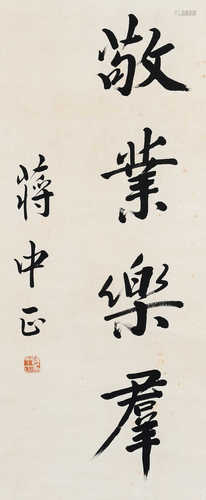 敬業樂羣
蔣中正